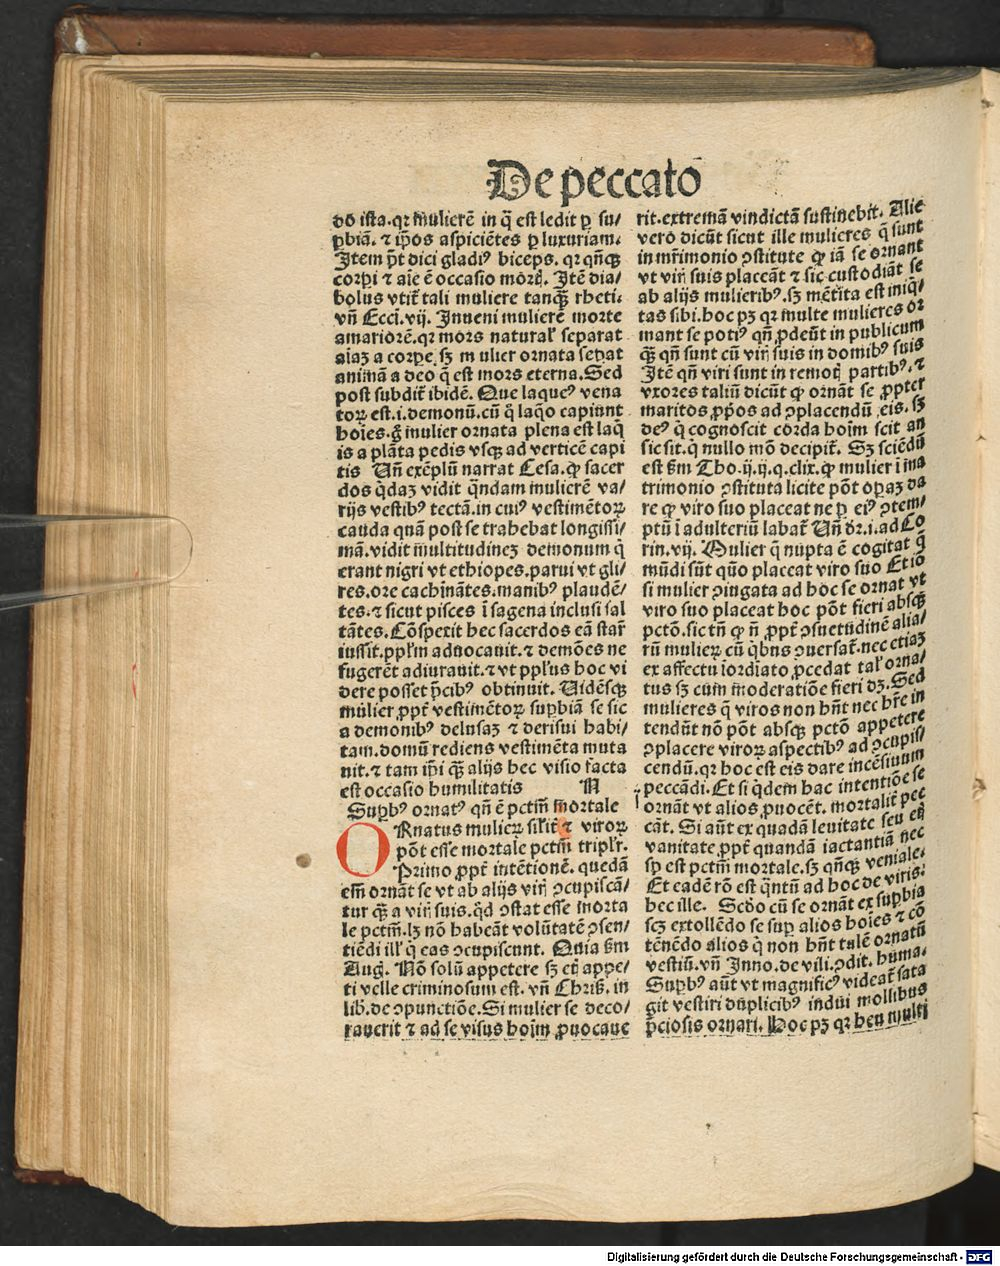 De peccatō
dō ista.qꝛ mulierē in q̄ est ledit ꝑ su/
ꝑbiā. ⁊ ip̄os aspiciētes ꝑ luxuriam.
Item p̄t dici gladiꝰ biceps. qꝛ qn̄qꝫ
corꝑi ⁊ aīe ē occasio mortꝭ. Itē dia/
bolus vtit̄ tali muliere tanqꝫ̄ rheti.
vn̄ Ecci.vij. Inueni mulierē morte
amariorē.qꝛ mors natural̕ separat
aīaꝫ a corpe. sꝫ m ulier ornata seꝑat
animā a deo q̄ est mors eterna. Sed
post subdit̄ ibidē. Que laqueꝰ vena
toꝝ est.i.demonū.cū q̄ laq̄o capiunt
hoīes.gͦ mulier ornata plena est laq̄
is a plāta pedis vsqꝫ ad verticē capi
tis Vn̄ exēplū narrat Cesa.ꝙ sacer
dos qͥdaꝫ vidit qͣndam mulierē va/
rijs vestibꝰ tectā.in cuiꝰ vestimētoꝝ
cauda quā post se trahebat longissi/
mā.vidit m̄ultitudineꝫ demonum q̄
erant nigri vt ethiopes.parui vt gli/
res.ore cachināntes.manibꝰ plaudē/
tes.⁊ sicut pisces ī sagena inclusi sal
tātes. Cōspexit hec sacerdos eā star̄
iussit.pplm̄ aduocauit.⁊ demōes ne
fugerēt adiurauit.⁊ vt pplꝰus hoc vi
dere posset p̄cibꝰ obtinuit. Vidēsqꝫ
mulier ꝓpt̄ vestimētoꝝ suꝑbiā se sic
a demonibꝰ delusaꝫ ⁊ derisui habi/
tam.domū rediens vestimēta muta
uit.⁊ tam ip̄i qꝫ̄ alijs hec visio facta
est occasio humilitatis N
Suꝑbꝰ ornatꝰ qn̄ ē pctm̄ mortale
ORnatus mulieꝝ sil̕it̄ ⁊ viroꝝ
pōt esse mortale pctm̄ tripl̕r.
Primo ꝓpt̄ intētionē. quedā
em̄ ornāt se vt ab alijs virꝭ ꝯcupiscā/
tur qꝫ̄ a virꝭ suis.qd̄ ꝯstat esse morta
le pctm̄.lꝫ nō habeāt volūtatē ꝯsen/
tiēdi ill̕ q̄ eas ꝯcupiscunt. Quia ẜm
Aug. Nō solū appetere sꝫ etꝭ appe/
ti velle criminosum est. vn̄ Chrisꝭ. in
lib.de ꝯpunctiōe. Si mulier se deco/
rauerit ⁊ ad se visus hoīm ꝓuocaue
rit.extremā vindictā sustinebit. Alie
vero dicūt sicut ille mulieres q̄ sunt
in mr̄imonio ꝯstitute ꝙ iā se ornant
vt virꝭ suis placeāt ⁊ sic custodiāt se
ab alijs mulieribꝰ.sꝫ mētita est iniqͥ/
tas sibi.hoc pꝫ qꝛ multe mulieres or
mant se potiꝰ qn̄ ꝓdeūt in publicum
qꝫ̄ qn̄ sunt cū virꝭ suis in domibꝰ suis
Itē qn̄ viri sunt in remotꝭ partibꝰ.⁊
vxores taliū dicūt ꝙ ornāt se ꝓpter
maritos ꝓp̄os ad ꝯplacendū eis. sꝫ
deꝰ q̄ cognoscit corda hoīm scit an
sic sit.q̄ nullo mō decipit̄. Sꝫ sciēdū
est ẜm Tho.ij.ij.q.clix.ꝙ mulier ī ma
trimonio ꝯstituta licite pōt oꝑaꝫ da
re ꝙ viro suo placeat ne ꝑ eiꝰ ꝯtem/
ptū ī adulteriū labat̄ Vn̄ dr̄.i.ad Co
rin.vij. Mulier q̄ nupta ē cogitat q̄
mūdi sūt quō placeat viro suo Et iō
si mulier ꝯiugata ad hoc se ornat vt
viro suo placeat hoc pōt fieri absqꝫ
pctō.sic tn̄ ꝙ nͦ ꝓpt̄ ꝯsuetudinē alia/
rū mulieꝝ cū qͥbus ꝯuersat̄.nec etiaꝫ
ex affectu īordīato ꝓcedat tal̕ orna/
tus sꝫ cum moderatiōe fieri dꝫ. Sed
mulieres q̄ viros non hn̄t nec hr̄e in
tendūt nō pōt absqꝫ pctō appetere
ꝯplacere viroꝝ aspectibꝰ ad ꝯcupis/
cendū.qꝛ hoc est eis dare incēsiuum
peccādi. Et si qͥdem hac intentiōe se
ornāt vt alios ꝓuocēt. mortalit̄ pec
cāt. Si aūt ex quadā leuitate seu etꝭ
vanitate ꝓpt̄ quandā iactantiā nec
sꝑ est pctm̄ mortale.sꝫ qn̄qꝫ veniale.
Et eadē rō est qͣntū ad hoc de viris.
hec ille. Scd̄o cū se ornāt ex suꝑbia
scꝫ extollēdo se suꝑ alios hoīes ⁊ cō
tēnēdo alios q̄ non hn̄t talē ornatū
vestiū.vn̄ Inno.de vili.ꝯdit. huma.
Suꝑbꝰ aūt vt magnificꝰ videat̄ sata
git vestiri duplicibꝰ indui mollibus
p̄ciosis ornari. Hoc pꝫ qꝛ heu multi
Digitalisierung gefördert durch die Deutsche Forschungsgemeinschaft - DFG